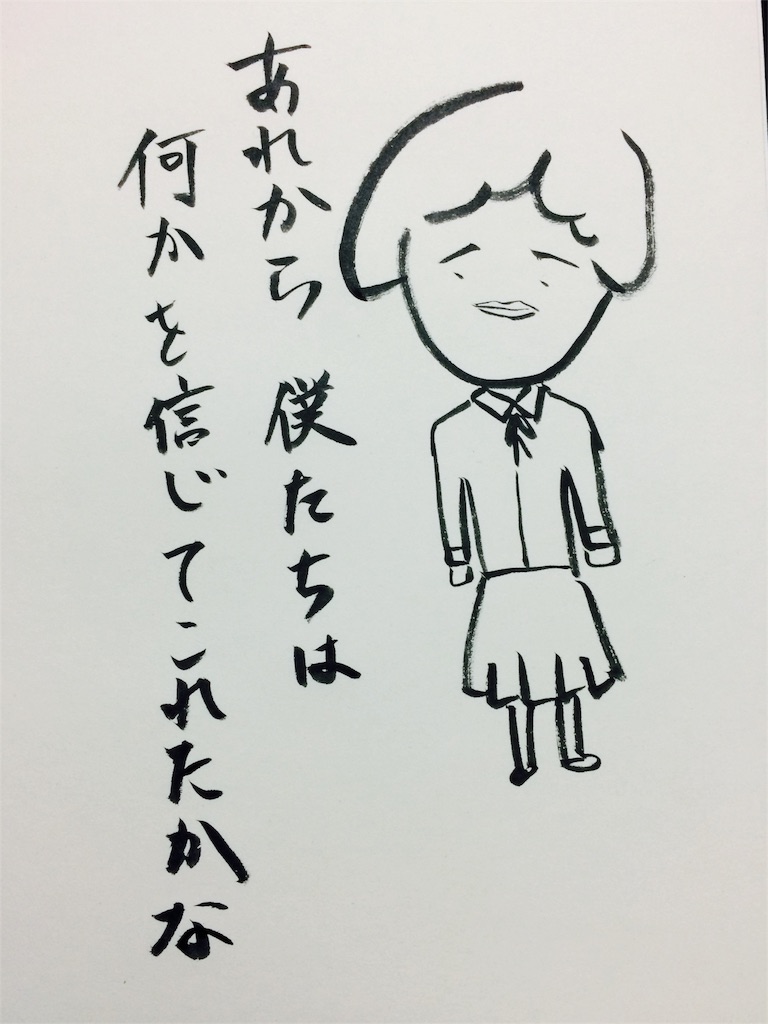 あれから 僕たちは
何かを信じてこれたかな